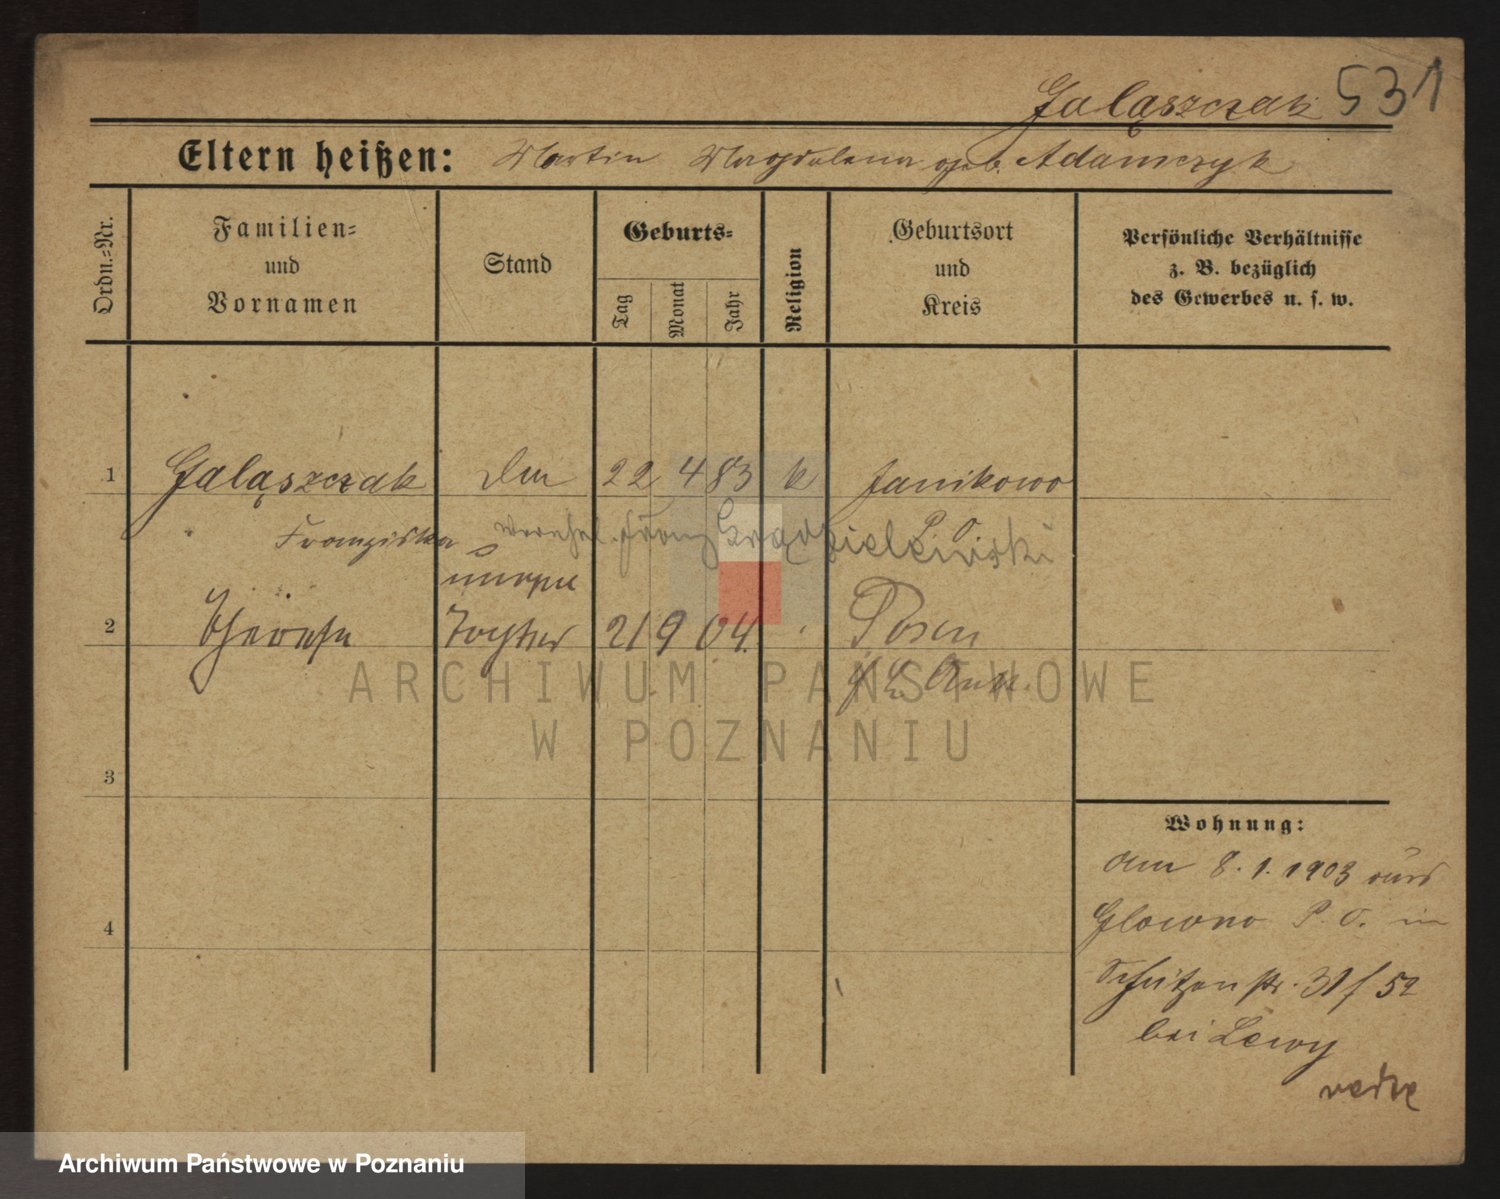 Galąszczak 531
Eltern heißen: Martin Magdalena geb. Adamczyk
Ordn.-Nr.
Familien-
und
Vornamen
Stand
Geburts-
Tag
Monat
Jahr
Religion
Geburtsort
und
Kreis
Persönliche Verhältnisse
z. B. bezüglich
des Gewerbes u. s. w.
1 Galąszczak 22 4 83 k Janikowo
Franziska P. O.
verehel. Franz Grądzielewski
2 Tochter 21 9 04. Posen
3
4
Wohnung:
Am 8. 1. 1903 aus
Glowno P. O. in
Schützenstr. 31 / 52
bei Lewy
ARCHIWUM PAŃSTWOWE
W POZNANIU
Archiwum Państwowe w Poznaniu